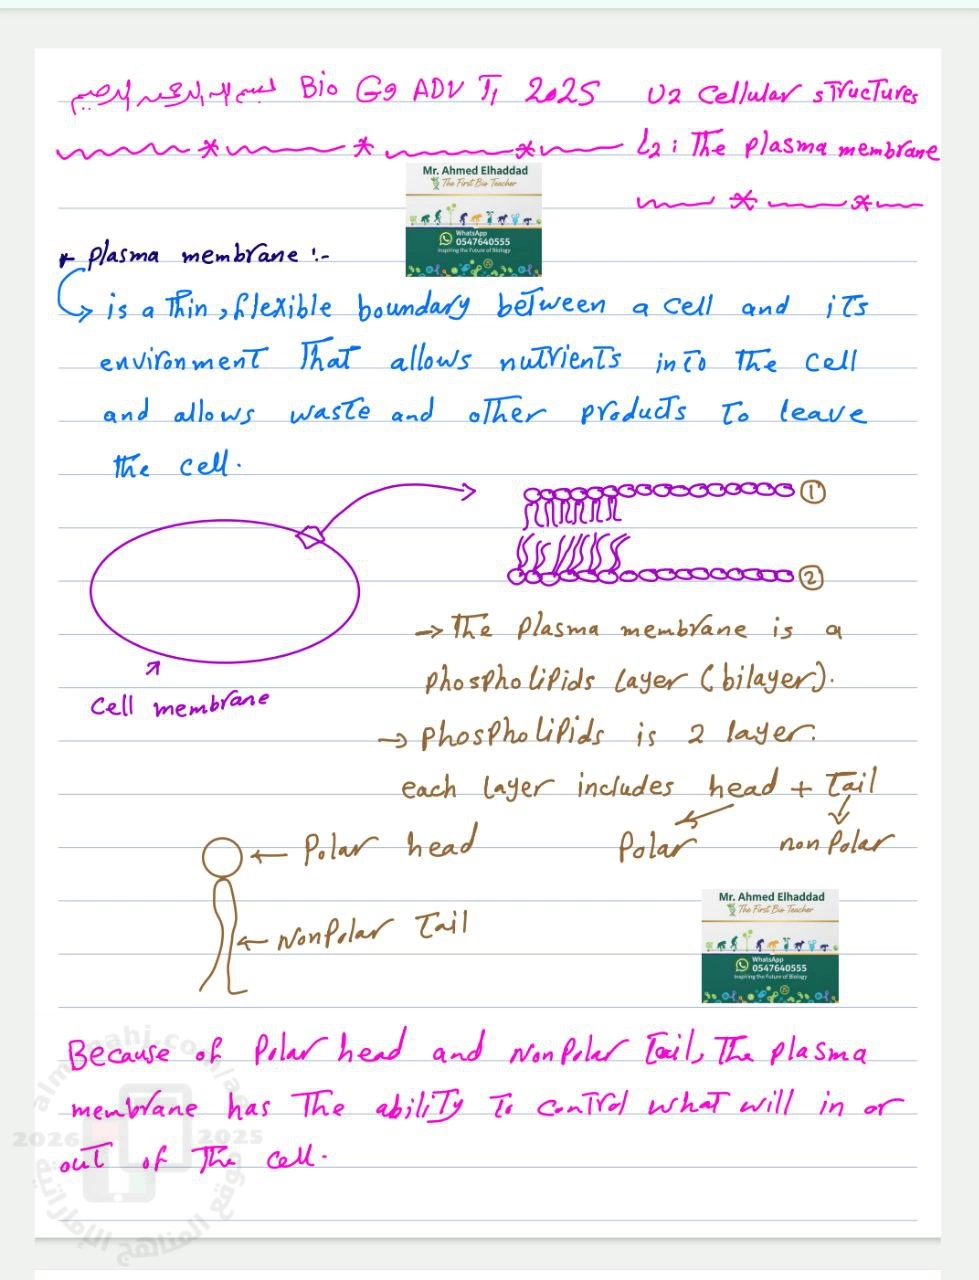 بسم الله الرحمن الرحيم Bio G9 ADV T1 2025 U2 Cellular structures
L2: The plasma membrane
Mr. Ahmed Elhaddad
The First Bio Teacher
WhatsApp
0547640555
Inspiring the Future of Biology
* plasma membrane :-
is a thin, flexible boundary between a cell and its
environment that allows nutrients into the cell
and allows waste and other products to leave
the cell.
1
2
cell membrane
→ The plasma membrane is a
phospholipids layer (bilayer).
→ phospholipids is 2 layer.
each layer includes head + tail
polar non polar
← polar head
← nonpolar tail
Mr. Ahmed Elhaddad
The First Bio Teacher
WhatsApp
0547640555
Inspiring the Future of Biology
Because of polar head and nonpolar tail, the plasma
membrane has the ability to control what will in or
out of the cell.
almanahj.com/ae
2026 2025
موقع المناهج الإماراتية